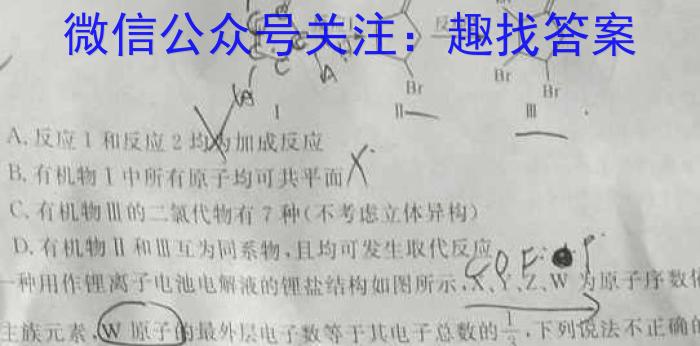 微信公众号关注：趣找答案
反
Br Br Br
I II III
A. 反应 1 和反应 2 均为加成反应
B. 有机物 I 中所有原子均可共平面 X
C. 有机物 III 的二氯代物有 7 种(不考虑立体异构)
D. 有机物 II 和 III 互为同系物,且均可发生取代反应
一种用作锂离子电池电解液的锂盐结构如图所示,X、Y、Z、W 为原子序数
主族元素,W 原子的最外层电子数等于其电子总数的 1/3,下列说法不正确的